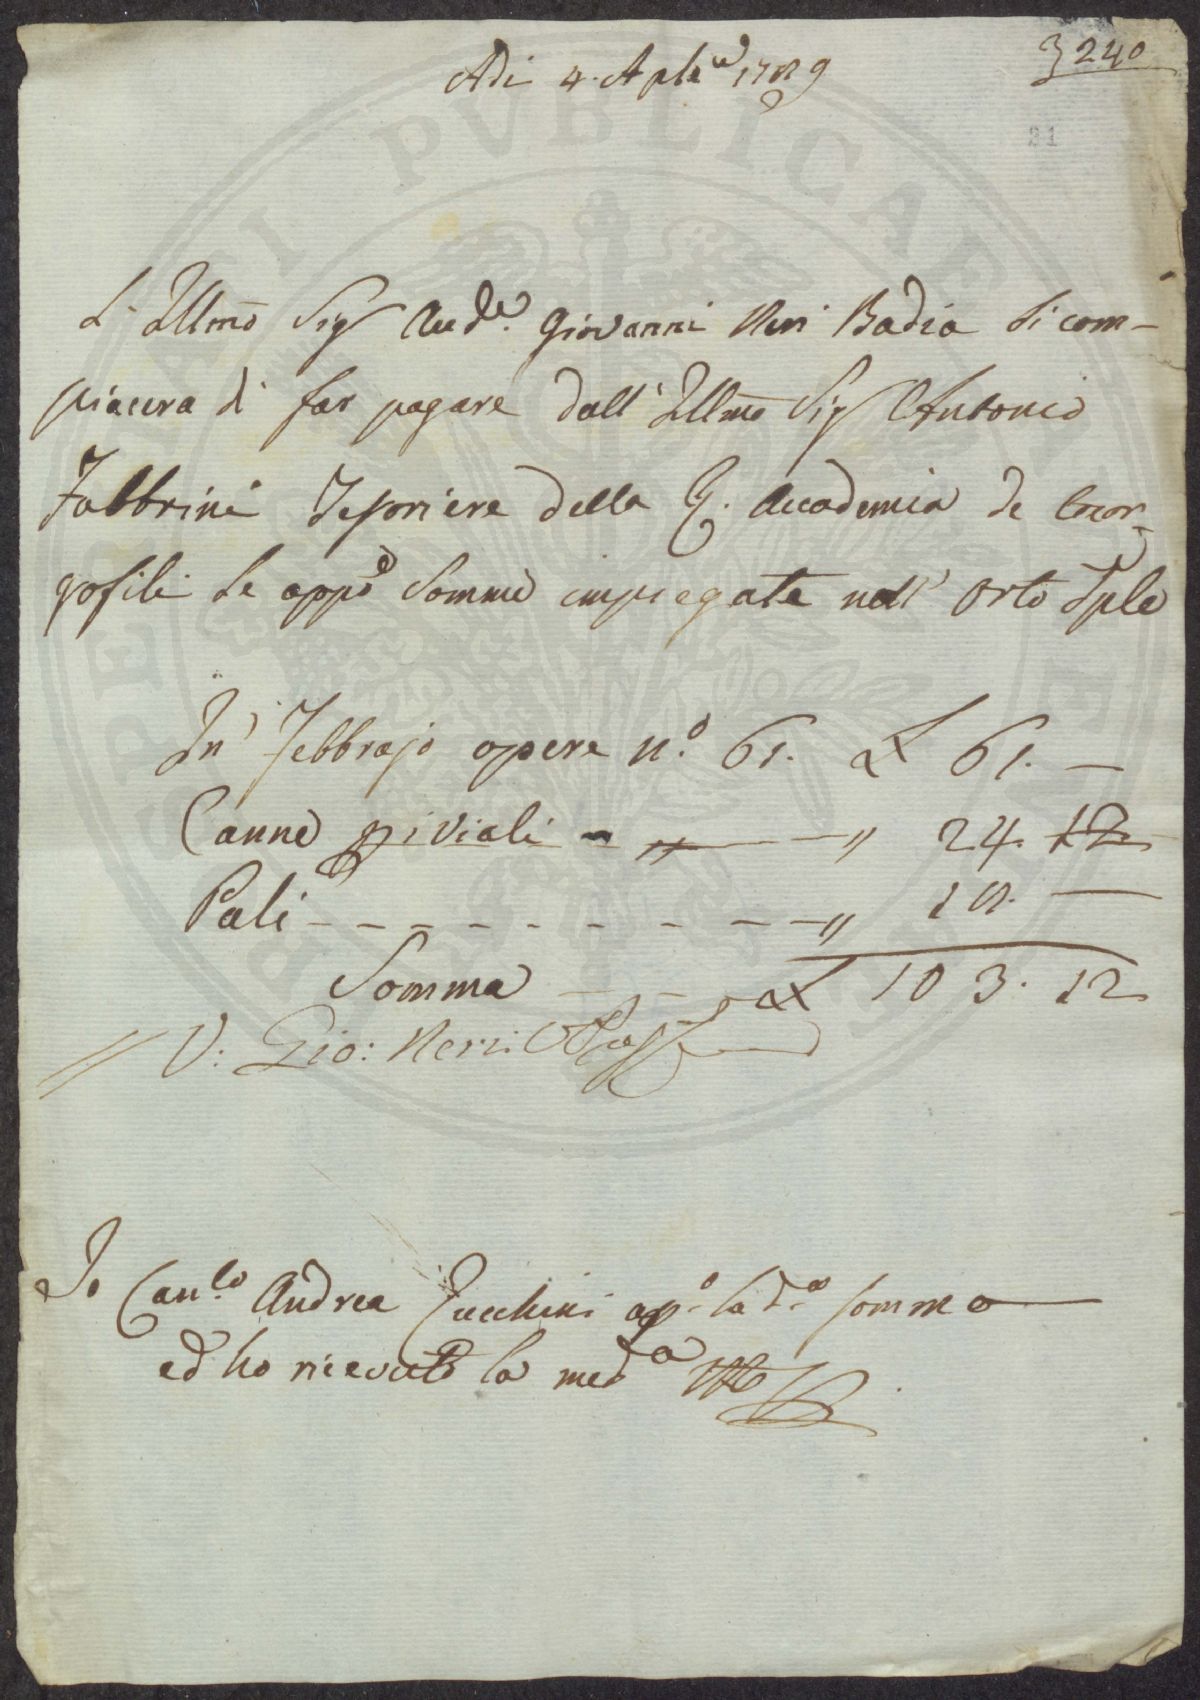 3240
Adi 4. Aple 1789
31
L' Illmo Sigr Aude. Giovanni Neri Badia Si com-
piacera di far pagare dall' Illmo Sigr Antonio
Fabbrini Tesoriere della R. Accademia de Geor-
gofili Le appe Somme impiegate nell' Orto Sple
In Febbrajo opere n.o 61. £ 61. —
Canne giviali - " — " 24. 12
Pali - - - - - - - - - " 18. —
Somma - - £ 103. 12
V: Gio: Neri
Io Can.co Andrea Zucchini ap.o la d.a somma
ed ho ricevuto la med.a